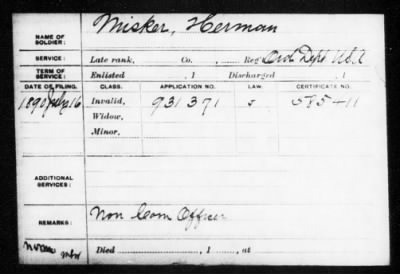 NAME OF SOLDIER: Misker, Herman
SERVICE: Late rank, Co. , Reg't Ord Dept U.S.A
TERM OF SERVICE: Enlisted , 1 Discharged , 1
DATE OF FILING. CLASS. APPLICATION NO. LAW. CERTIFICATE NO.
1890 July 16 Invalid, 931371
Widow,
Minor,
ADDITIONAL SERVICES:
REMARKS: Non Com Officer
Died , 1 , at